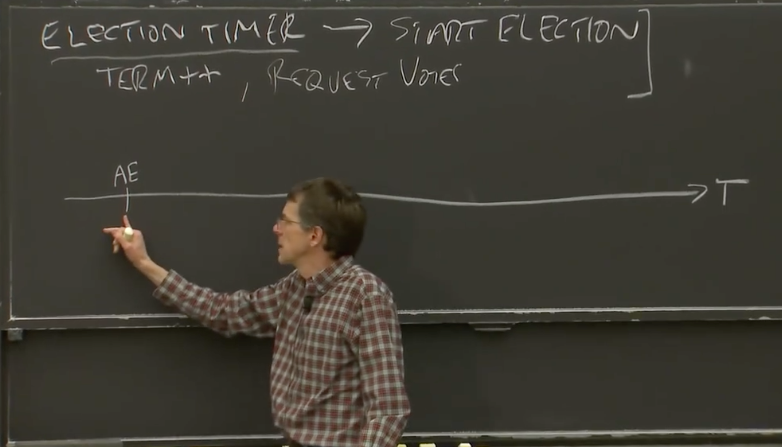 ELECTION TIMER → START ELECTION
TERM++, REQUEST VOTES
AE
T